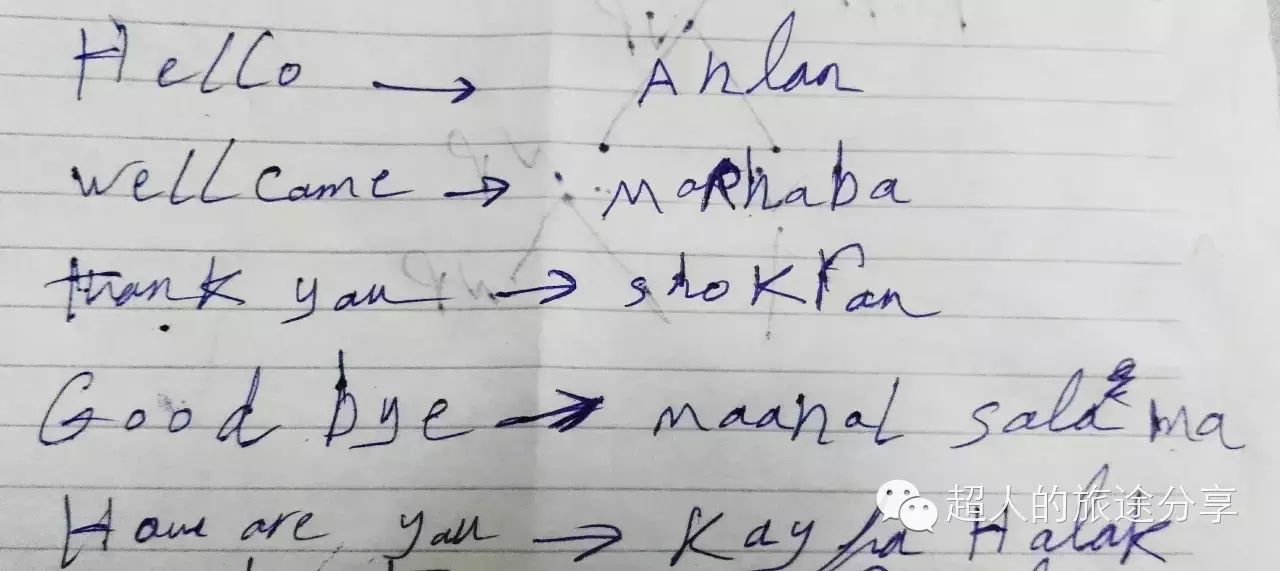 Hello → Ahlan
wellcame → Marhaba
thank you → shokran
Good bye → maahal salama
How are you → Kayfa Halak
超人的旅途分享